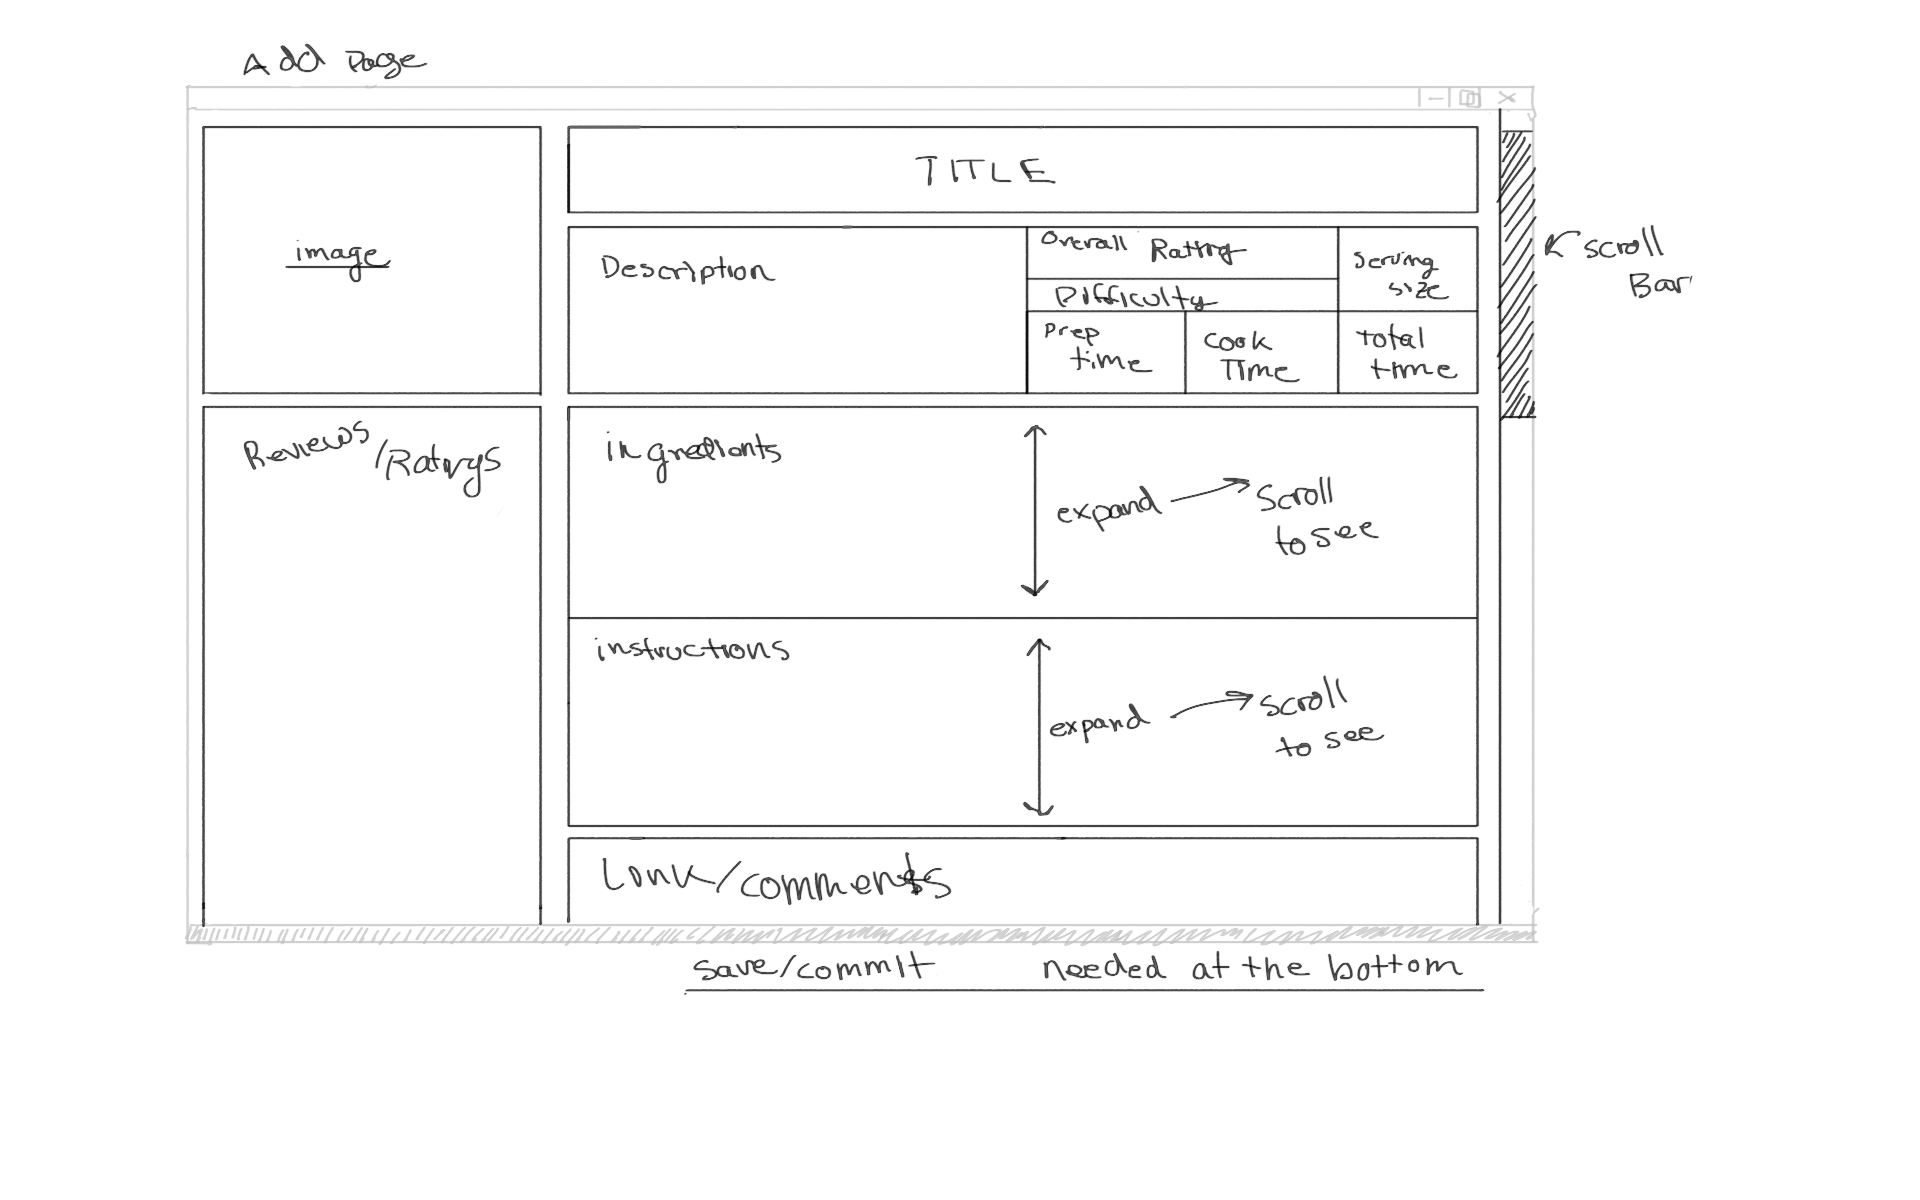 Add Page
TITLE
image
Description
Overall Rating
Serving
size
Difficulty
Prep
time
Cook
Time
total
time
scroll
Bar
Reviews
/Ratings
ingredients
expand
Scroll
to see
instructions
expand
Scroll
to see
Link/comments
save/commit needed at the bottom